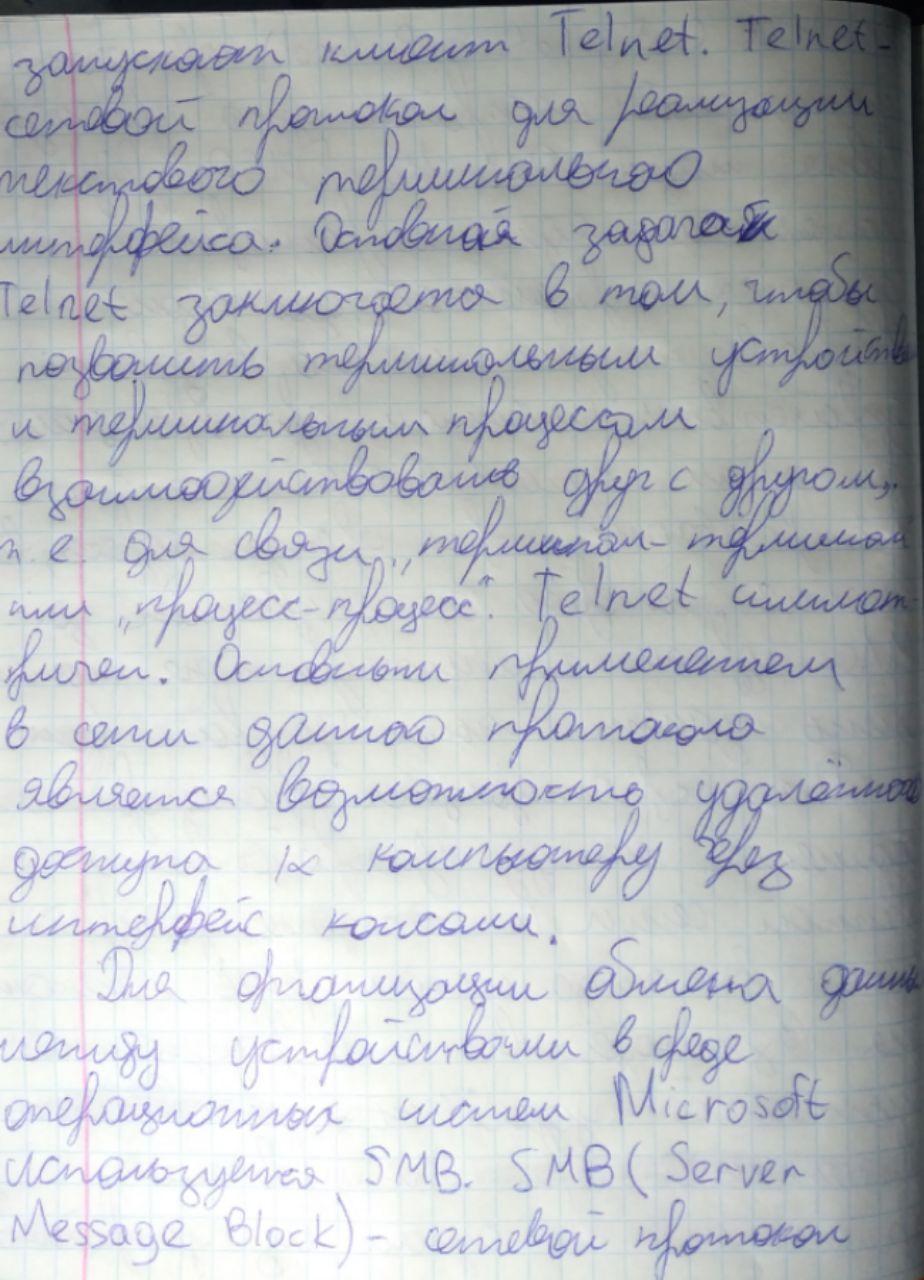 запускает клиент Telnet. Telnet -
сетевой протокол для реализации
текстового терминального
интерфейса. Основная задача
Telnet заключается в том, чтобы
позволить терминальным устройств
и терминальным процессам
взаимодействовать друг с другом,
т.е. для связи „терминал-терминал
или „процесс-процесс". Telnet симмет
ричен. Основным применением
в сети данного протокола
является возможность удалённого
доступа к компьютеру через
интерфейс консоли.
Для организации обмена данн
между устройствами в среде
операционных систем Microsoft
используется SMB. SMB (Server
Message Block) - сетевой протокол